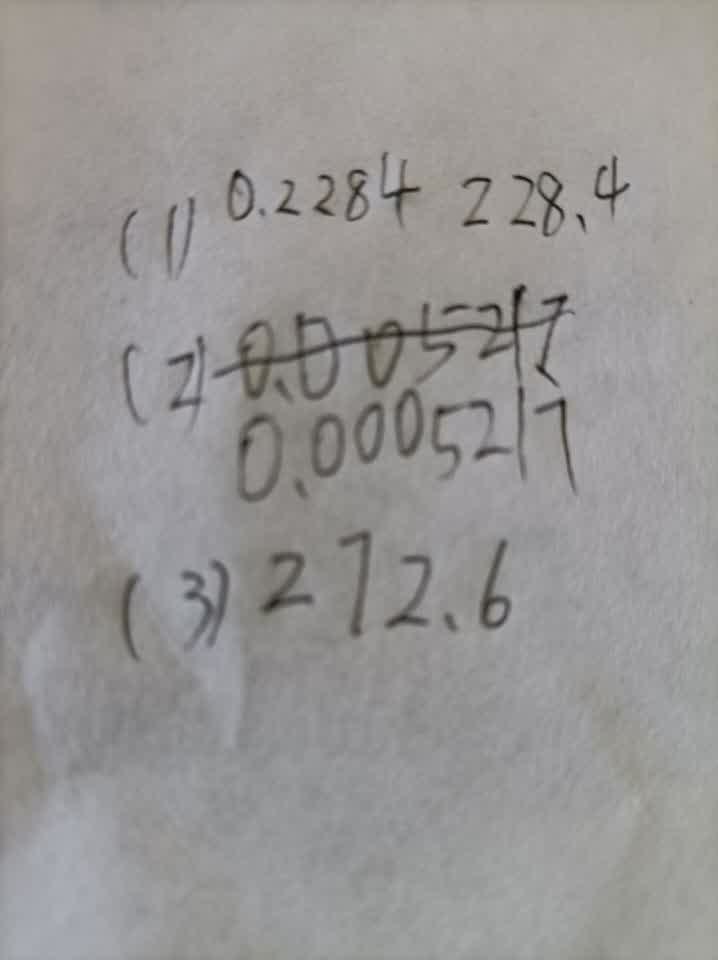 (1) 0.2284 228.4
(2) 0.005217
0.0005217
(3) 272.6